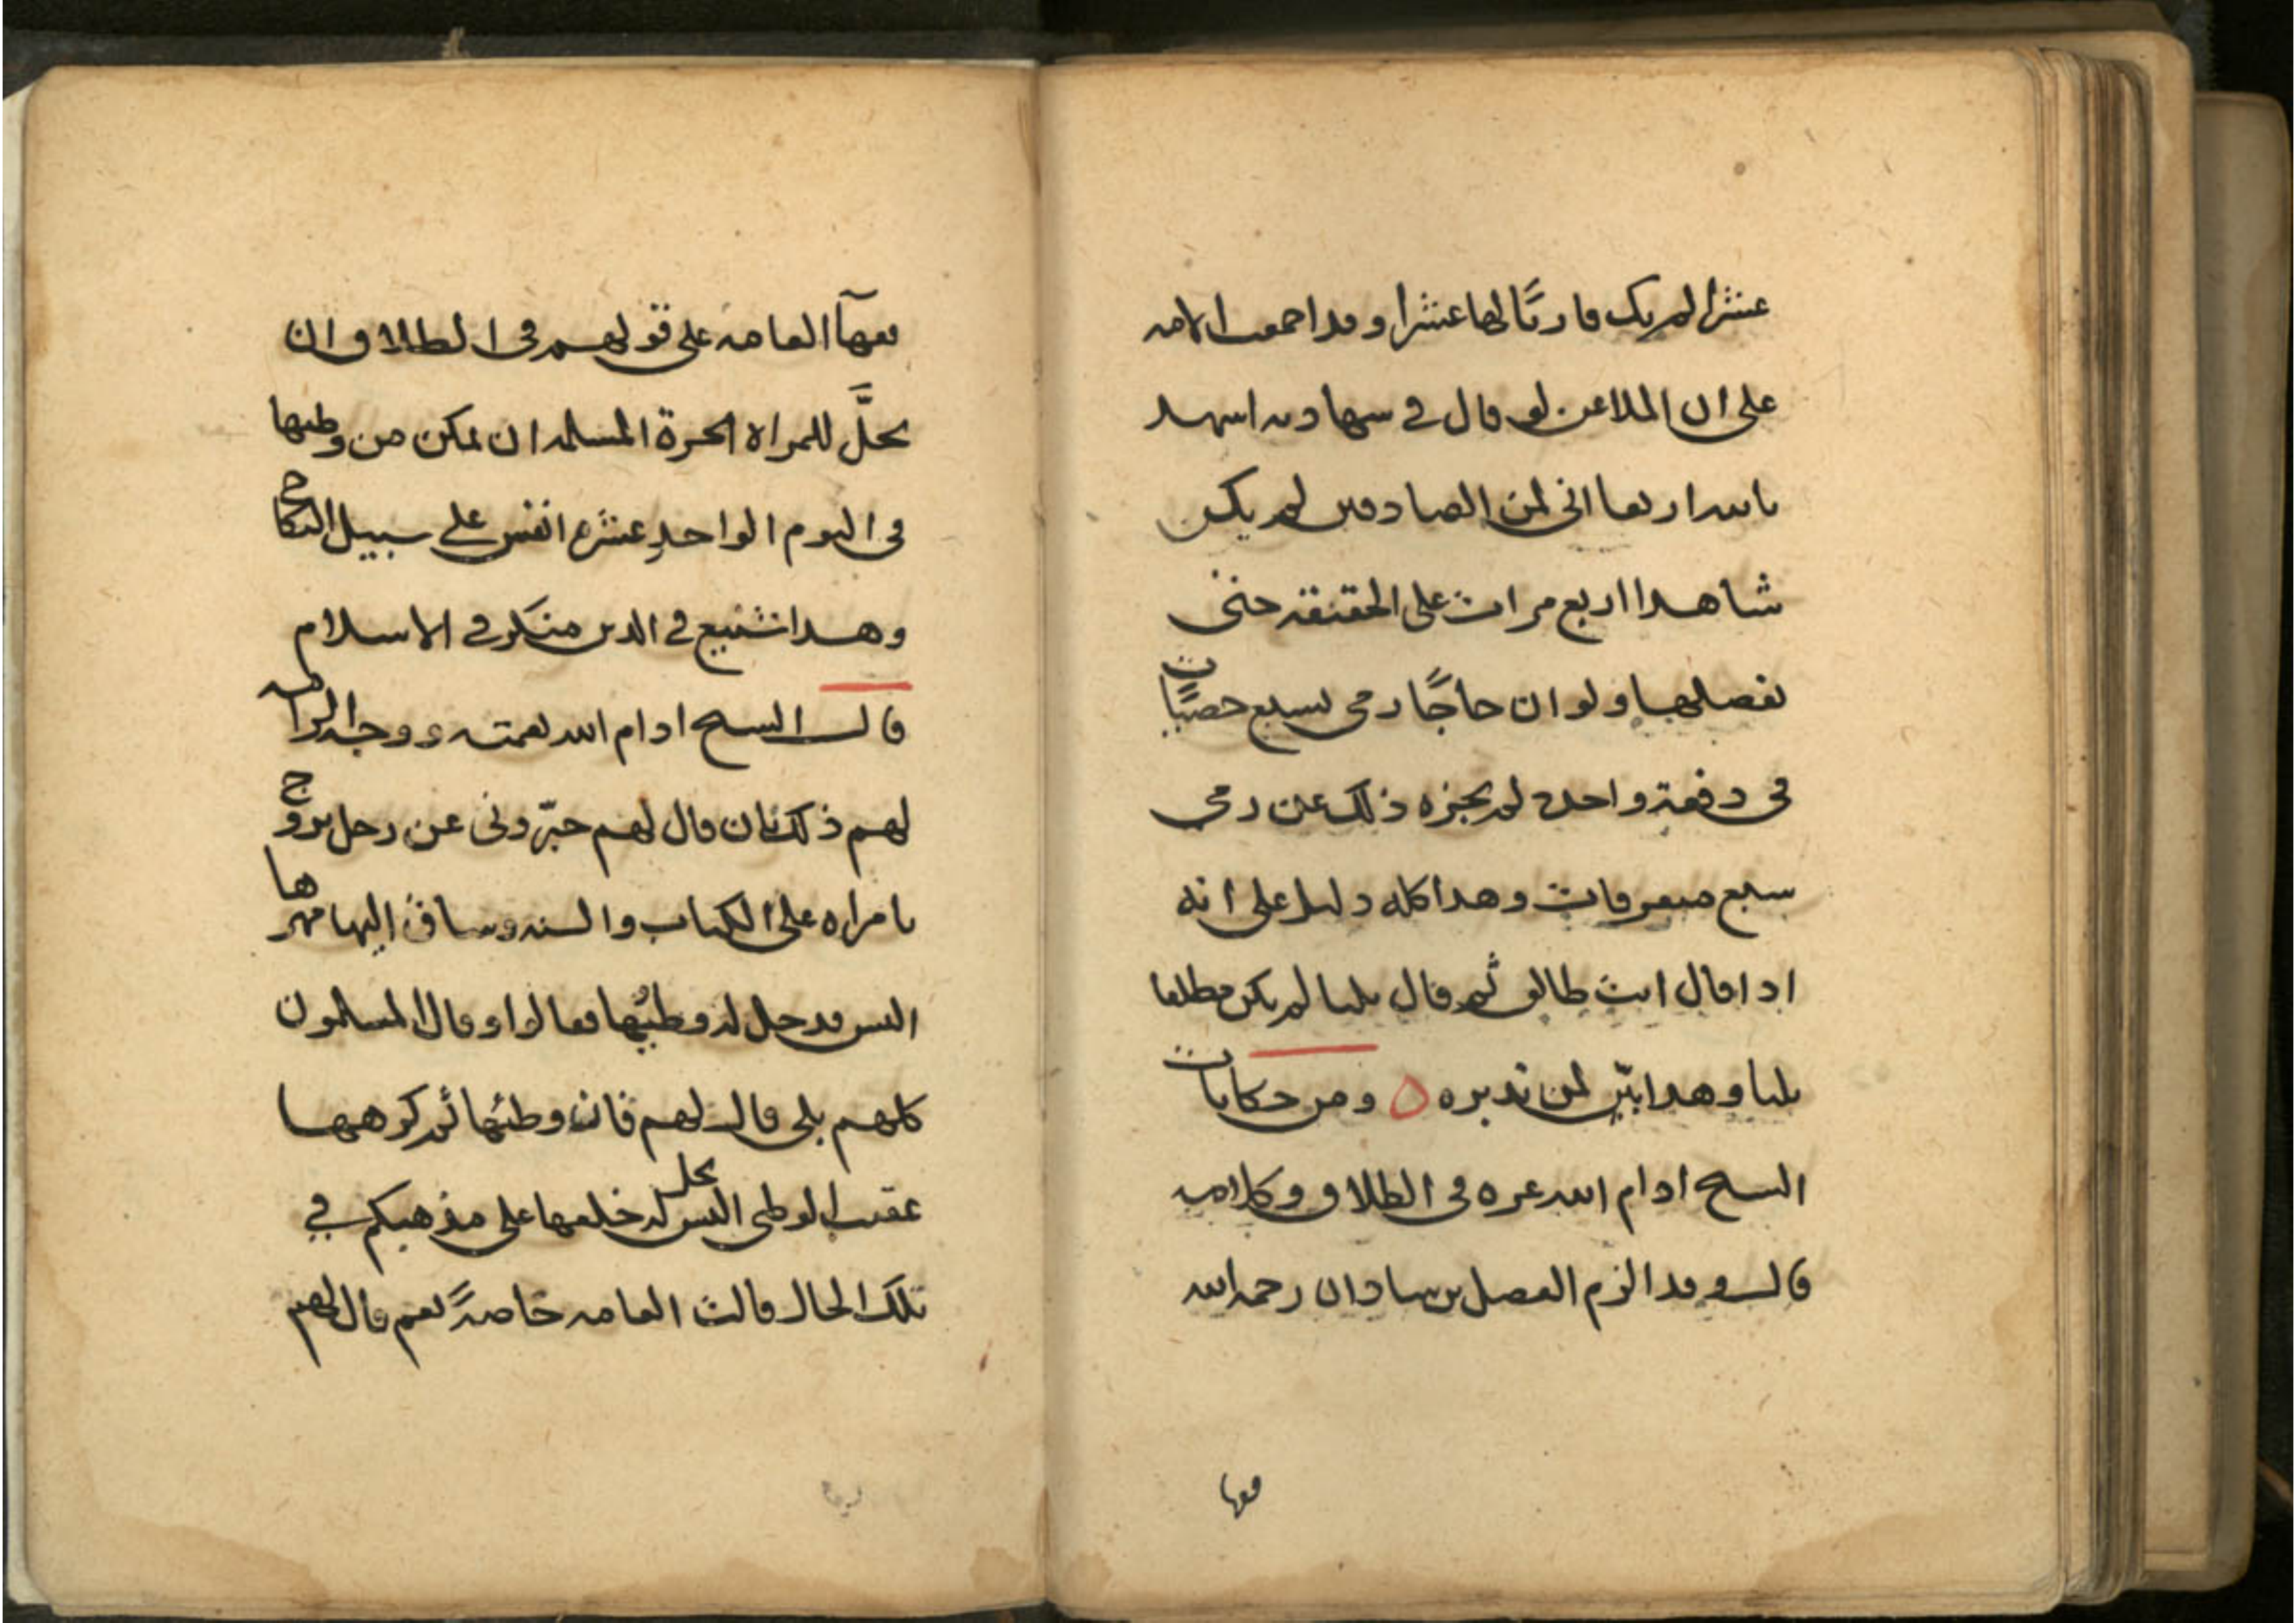 عشرا لم يك قارئا لها عشرا وقد اجمعت الامه
على ان الملاعن لو قال في شهادته اشهد
بالله اربعا اني لمن الصادقين لم يكن
شاهدا اربع مرات على الحقيقة حتى
يفصلها ولو ان حاجًا رمى بسبع حصيّات
في دفعة واحدة لم يجزه ذلك عن رمي
سبع متفرقات وهذا كله دليل على انه
اذا قال انت طالق ثم قال ثلثا لم يكن مطلقا
ثلثا وهذا بيّن لمن تدبره ٥ ومن حكايات
الشيخ ادام الله عزه في الطلاق وكلامه
قال وقد الزم الفضل بن شاذان رحمه الله
فقها
فقهآ العامه على قولهم في الطلاق ان
يحلَّ للمراة الحرة المسلمه ان تمكن من وطيها
في اليوم الواحد عشرة انفس على سبيل النكاح
وهذا شنيع في الدين منكر في الاسلام
قال الشيخ ادام الله نعمته ووجه الزامه
لهم ذلك بان قال لهم خبّروني عن رجل تزوج
بامراه على الكتاب والسنه وساق اليها مهرها
اليس قد حل له وطيُها فقالوا وقال المسلمون
كلهم بلى قال لهم فان وطئها ثم كرهها
عقيب الوطى اليس يحل له خلعها على مذهبكم في
تلك الحال قالت العامه خاصةً نعم قال لهم